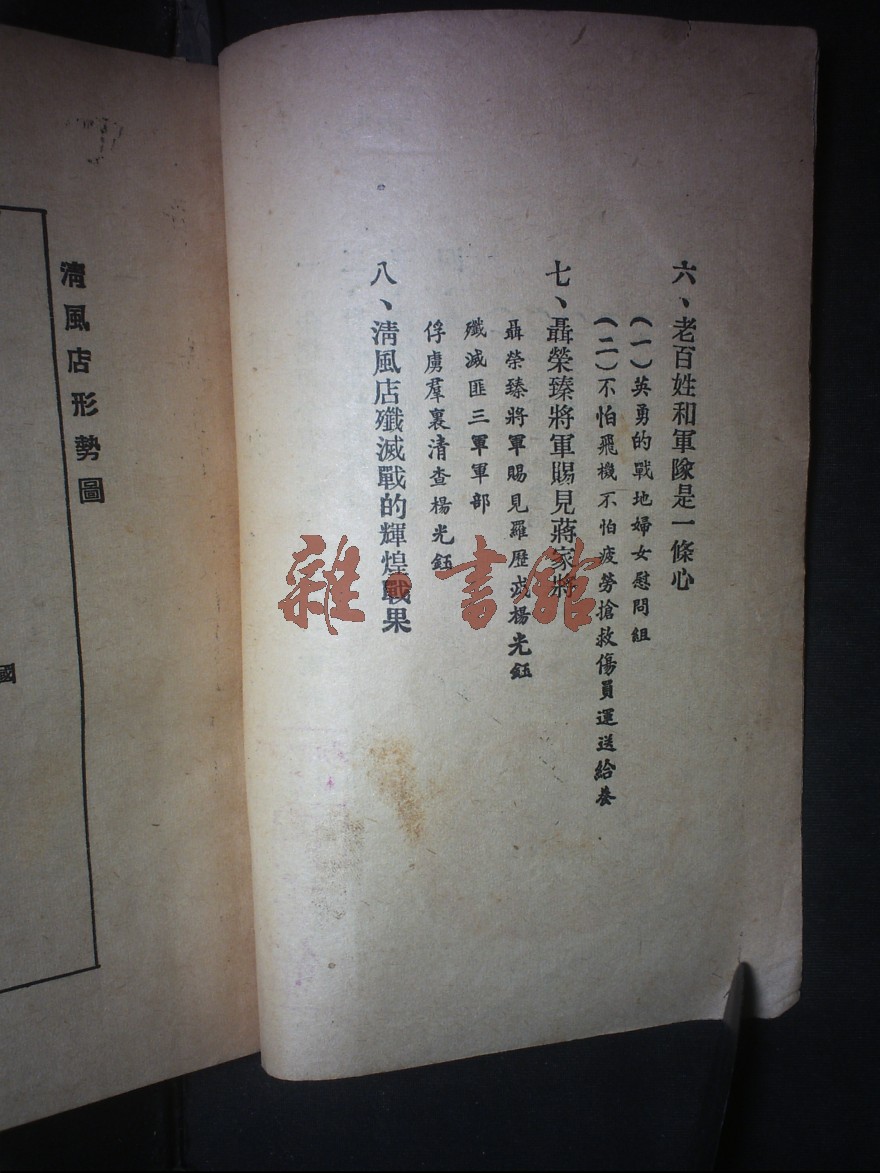 六、老百姓和軍隊是一條心
(一)英勇的戰地婦女慰問組
(二)不怕飛機不怕疲勞搶救傷員運送給養
七、聶榮臻將軍賜見蔣家將
聶榮臻將軍賜見羅歷戎楊光鈺
殲滅匪三軍軍部
俘虜羣裏清查楊光鈺
八、清風店殲滅戰的輝煌戰果
清風店形勢圖
國
雜·書館